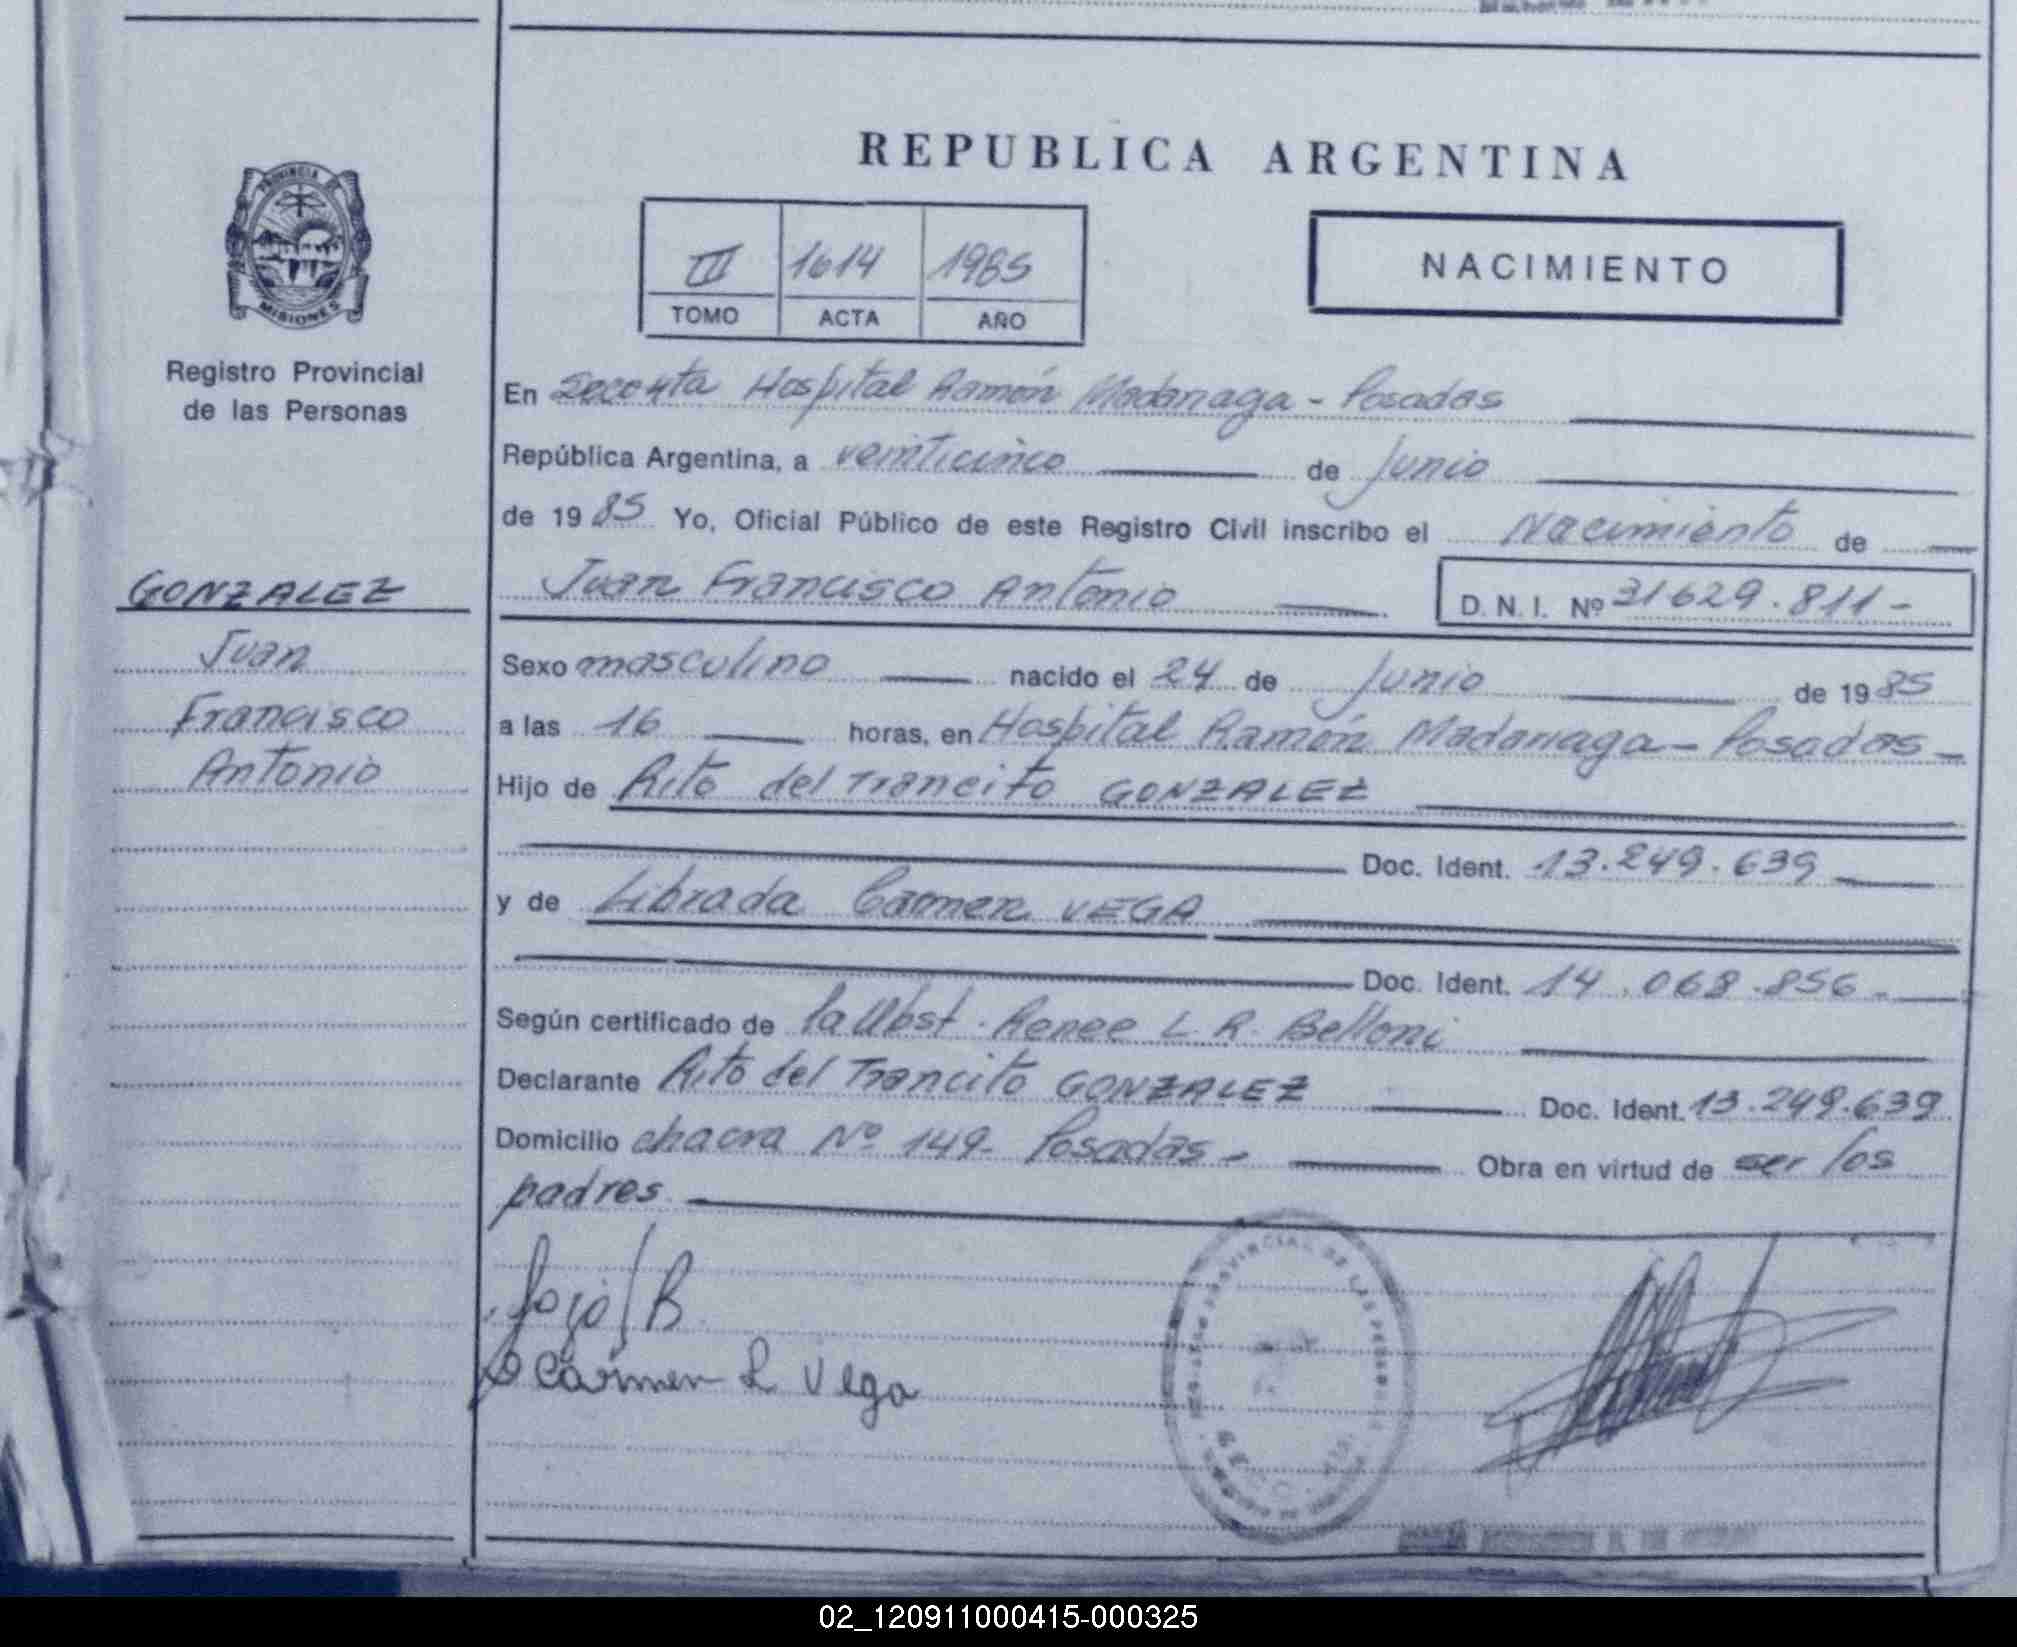 REPUBLICA ARGENTINA
PROVINCIA DE
MISIONES
Registro Provincial
de las Personas
III 1614 1985
TOMO ACTA AÑO
NACIMIENTO
En Hospital Ramón Madariaga - Posadas
República Argentina, a veinticinco de Junio
de 1985 Yo, Oficial Público de este Registro Civil inscribo el Nacimiento de
Juan Francisco Antonio D.N.I. Nº 31629.811-
GONZALEZ
Juan
Francisco
Antonio
Sexo masculino nacido el 24 de Junio de 1985
a las 16 horas, en Hospital Ramón Madariaga - Posadas -
Hijo de Rito del Trancito GONZALEZ
Doc. Ident. 13.249.639
y de Librada Carmen VEGA
Doc. Ident. 14.068.856-
Según certificado de Renee L. R. Belloni
Declarante Rito del Trancito GONZALEZ Doc. Ident. 13.249.639
Domicilio chacra Nº 149- Posadas - Obra en virtud de ser los
padres
Carmen L Vega
PROVINCIAL DE LAS PERSONAS
02_120911000415-000325